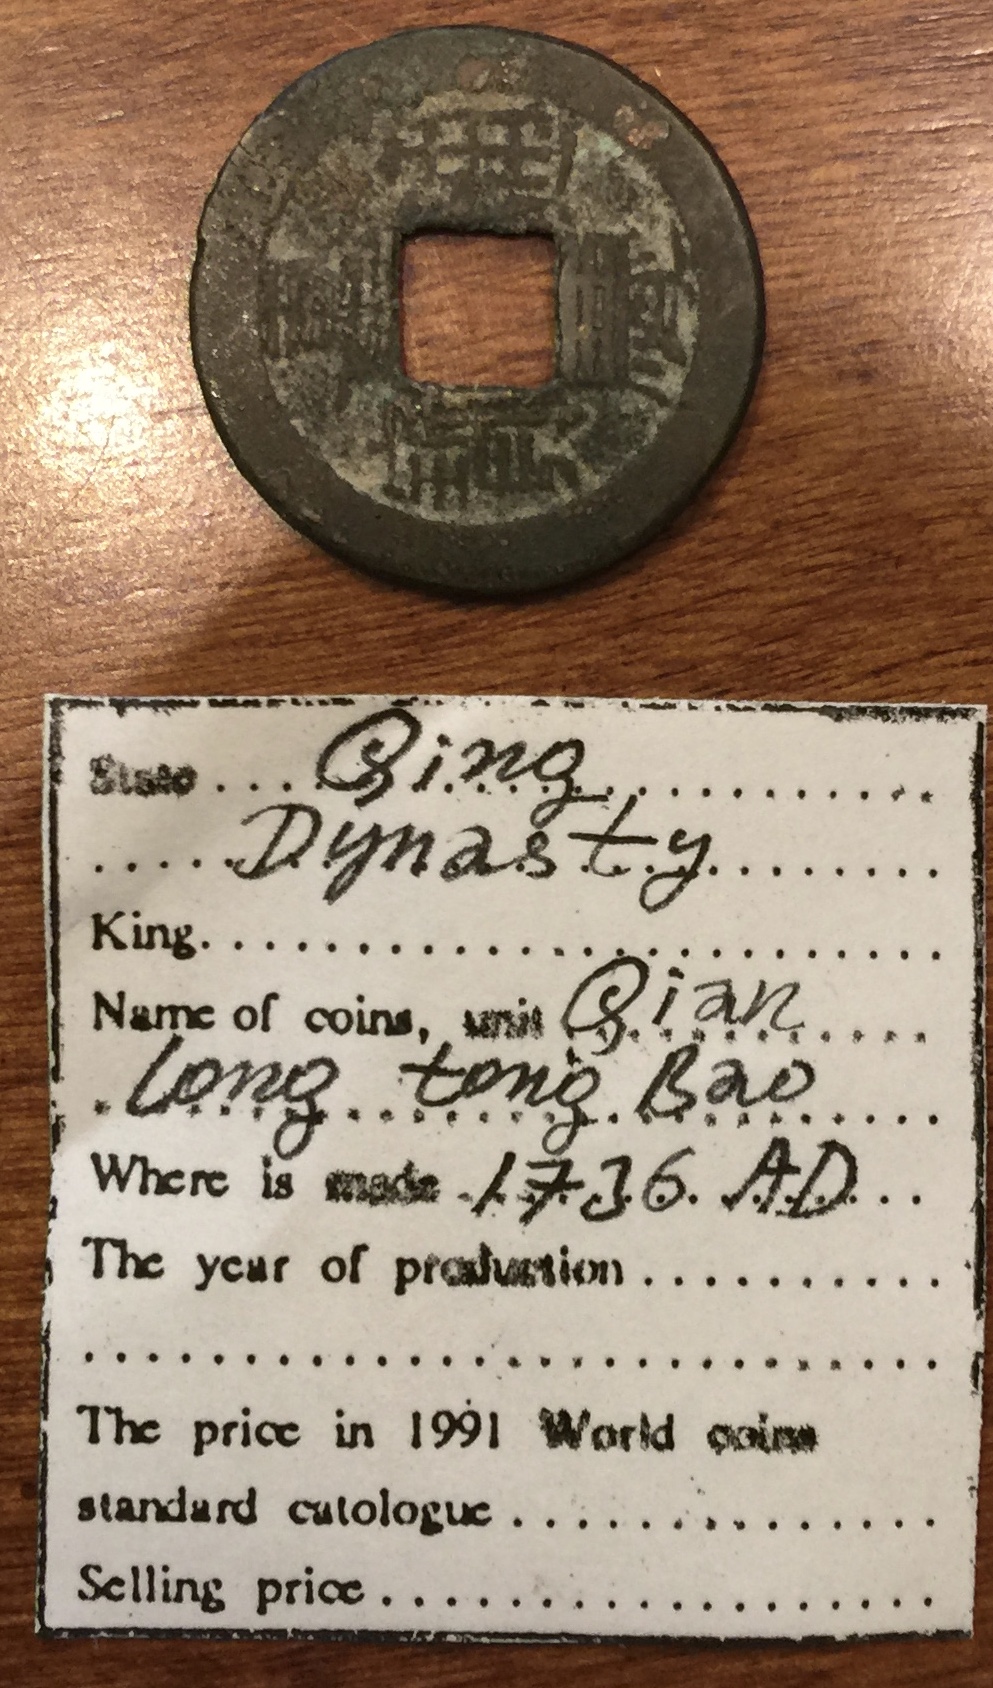 State Qing
Dynasty
King
Name of coins, unit Qian
long tong Bao
Where is made 1736 AD
The year of production
The price in 1991 World coins
standard catologue
Selling price